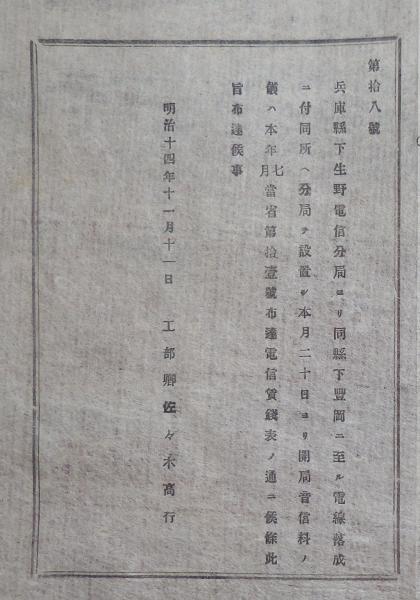 第拾八號
兵庫縣下生野電信分局ヨリ同縣下豐岡ニ至ル電線落成
ニ付同所ヘ分局ヲ設置シ本月二十日ヨリ開局音信料ノ
儀ハ本年七月當省第拾壹號布達電信賃錢表ノ通ニ候條此
旨布達候事
明治十四年十一月十一日　工部卿佐々木高行